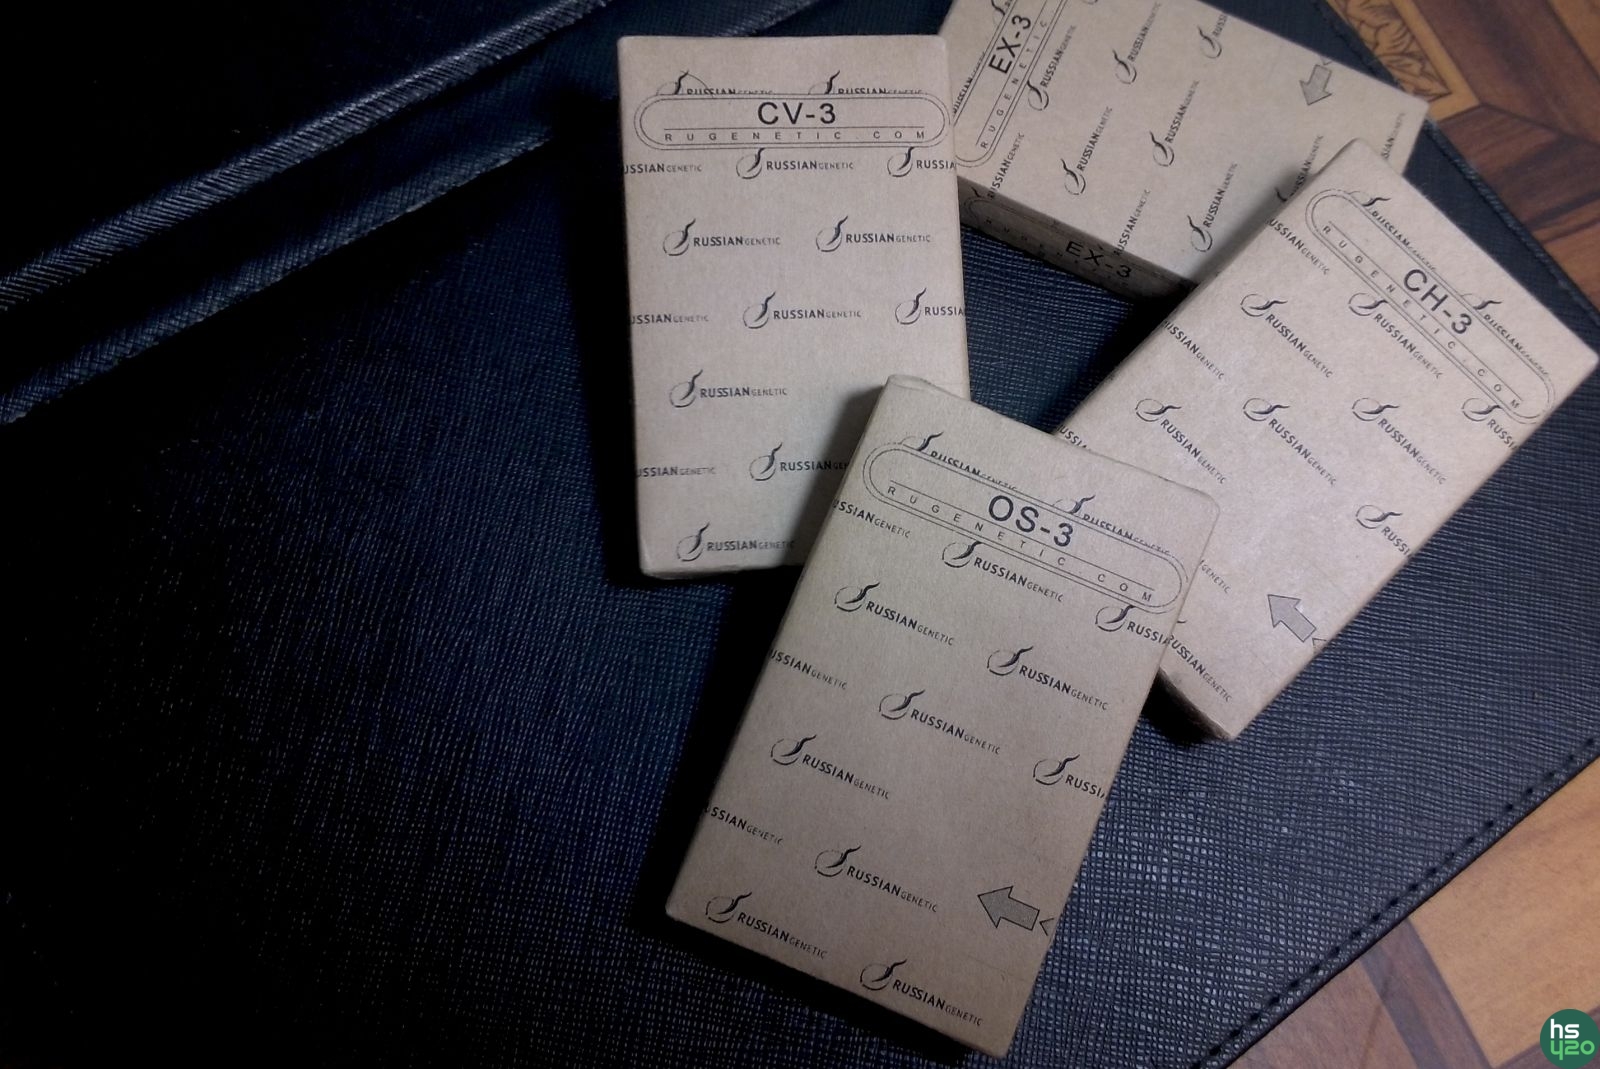 RUSSIANGENETIC RUSSIANGENETIC
CV-3
RUGENETIC COM
USSIANGENETIC RUSSIANGENETIC RUSSIA
RUSSIANGENETIC RUSSIANGENETIC
USSIANGENETIC RUSSIANGENETIC RUSSIA
RUSSIANGENETIC
USSIANGENETIC RUSSIANGE
RUSSIANGENETIC
EX-3
RUGENETIC
RUSSIANGENETIC
RUSSIANGENETIC
RUSSIANGENETIC
RUSSIANGENETIC
RUSSIANGENETIC
RUSSIANGENETIC
EX-3
RUSSIANGENETIC RUSSIANGENETIC
CH-3
RUGENETIC.COM
USSIANGENETIC RUSSIANGENETIC RUSSIANGENETIC RUSSI
USSIANGENETIC RUSSIANGENETIC RUSSIANGENETIC
RUSSIANGENETIC RUSSIAN
RUSSIANGENETIC
RUSSIANGENETIC RUSSIANGENETIC
OS-3
RUGENETIC.COM
USSIANGENETIC RUSSIANGENETIC RUSSIA
RUSSIANGENETIC RUSSIANGENETIC
USSIANGENETIC RUSSIANGENETIC RUSSI
RUSSIANGENETIC
USSIANGENETIC RUSSIANGENETIC
RUSSIANGENETIC RUSSIANGENETIC
hs
420